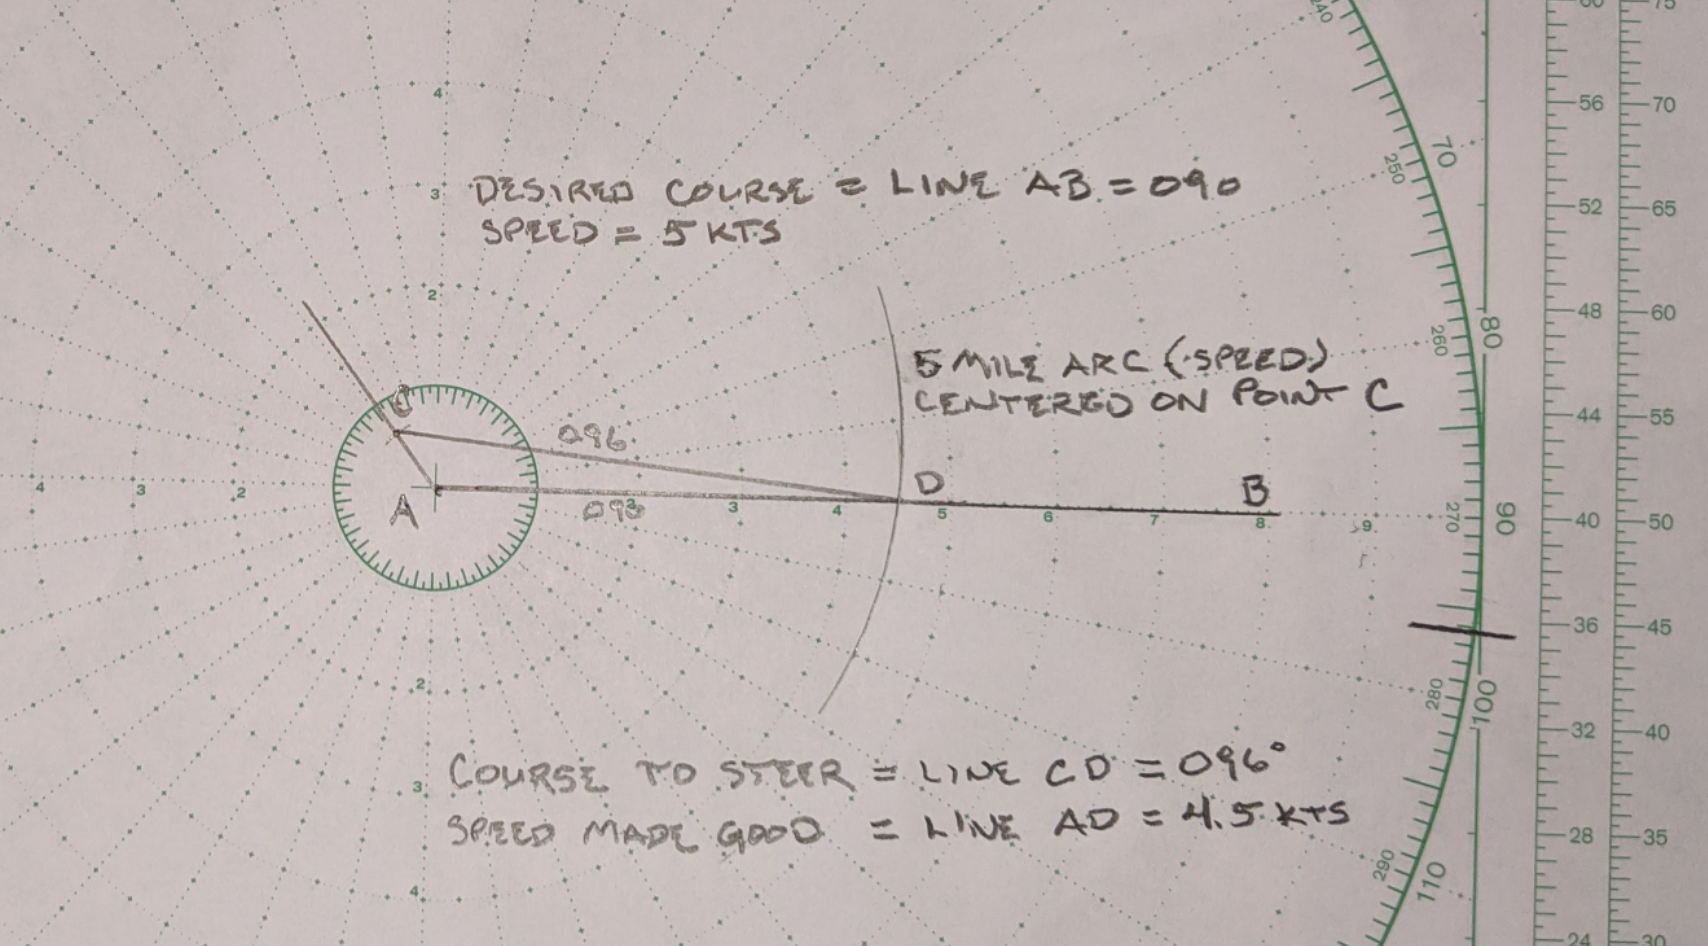 DESIRED COURSE = LINE AB = 090
SPEED = 5 KTS
5 MILE ARC (SPEED)
CENTERED ON POINT C
C
096
A
090
D
B
COURSE TO STEER = LINE CD = 096°
SPEED MADE GOOD = LINE AD = 4.5 KTS
4
3
2
4 3 2
3 4 5 6 7 8 9
2
3
4
240
250
260
270
280
290
70
80
90
100
110
60
56
52
48
44
40
36
32
28
24
75
70
65
60
55
50
45
40
35
30